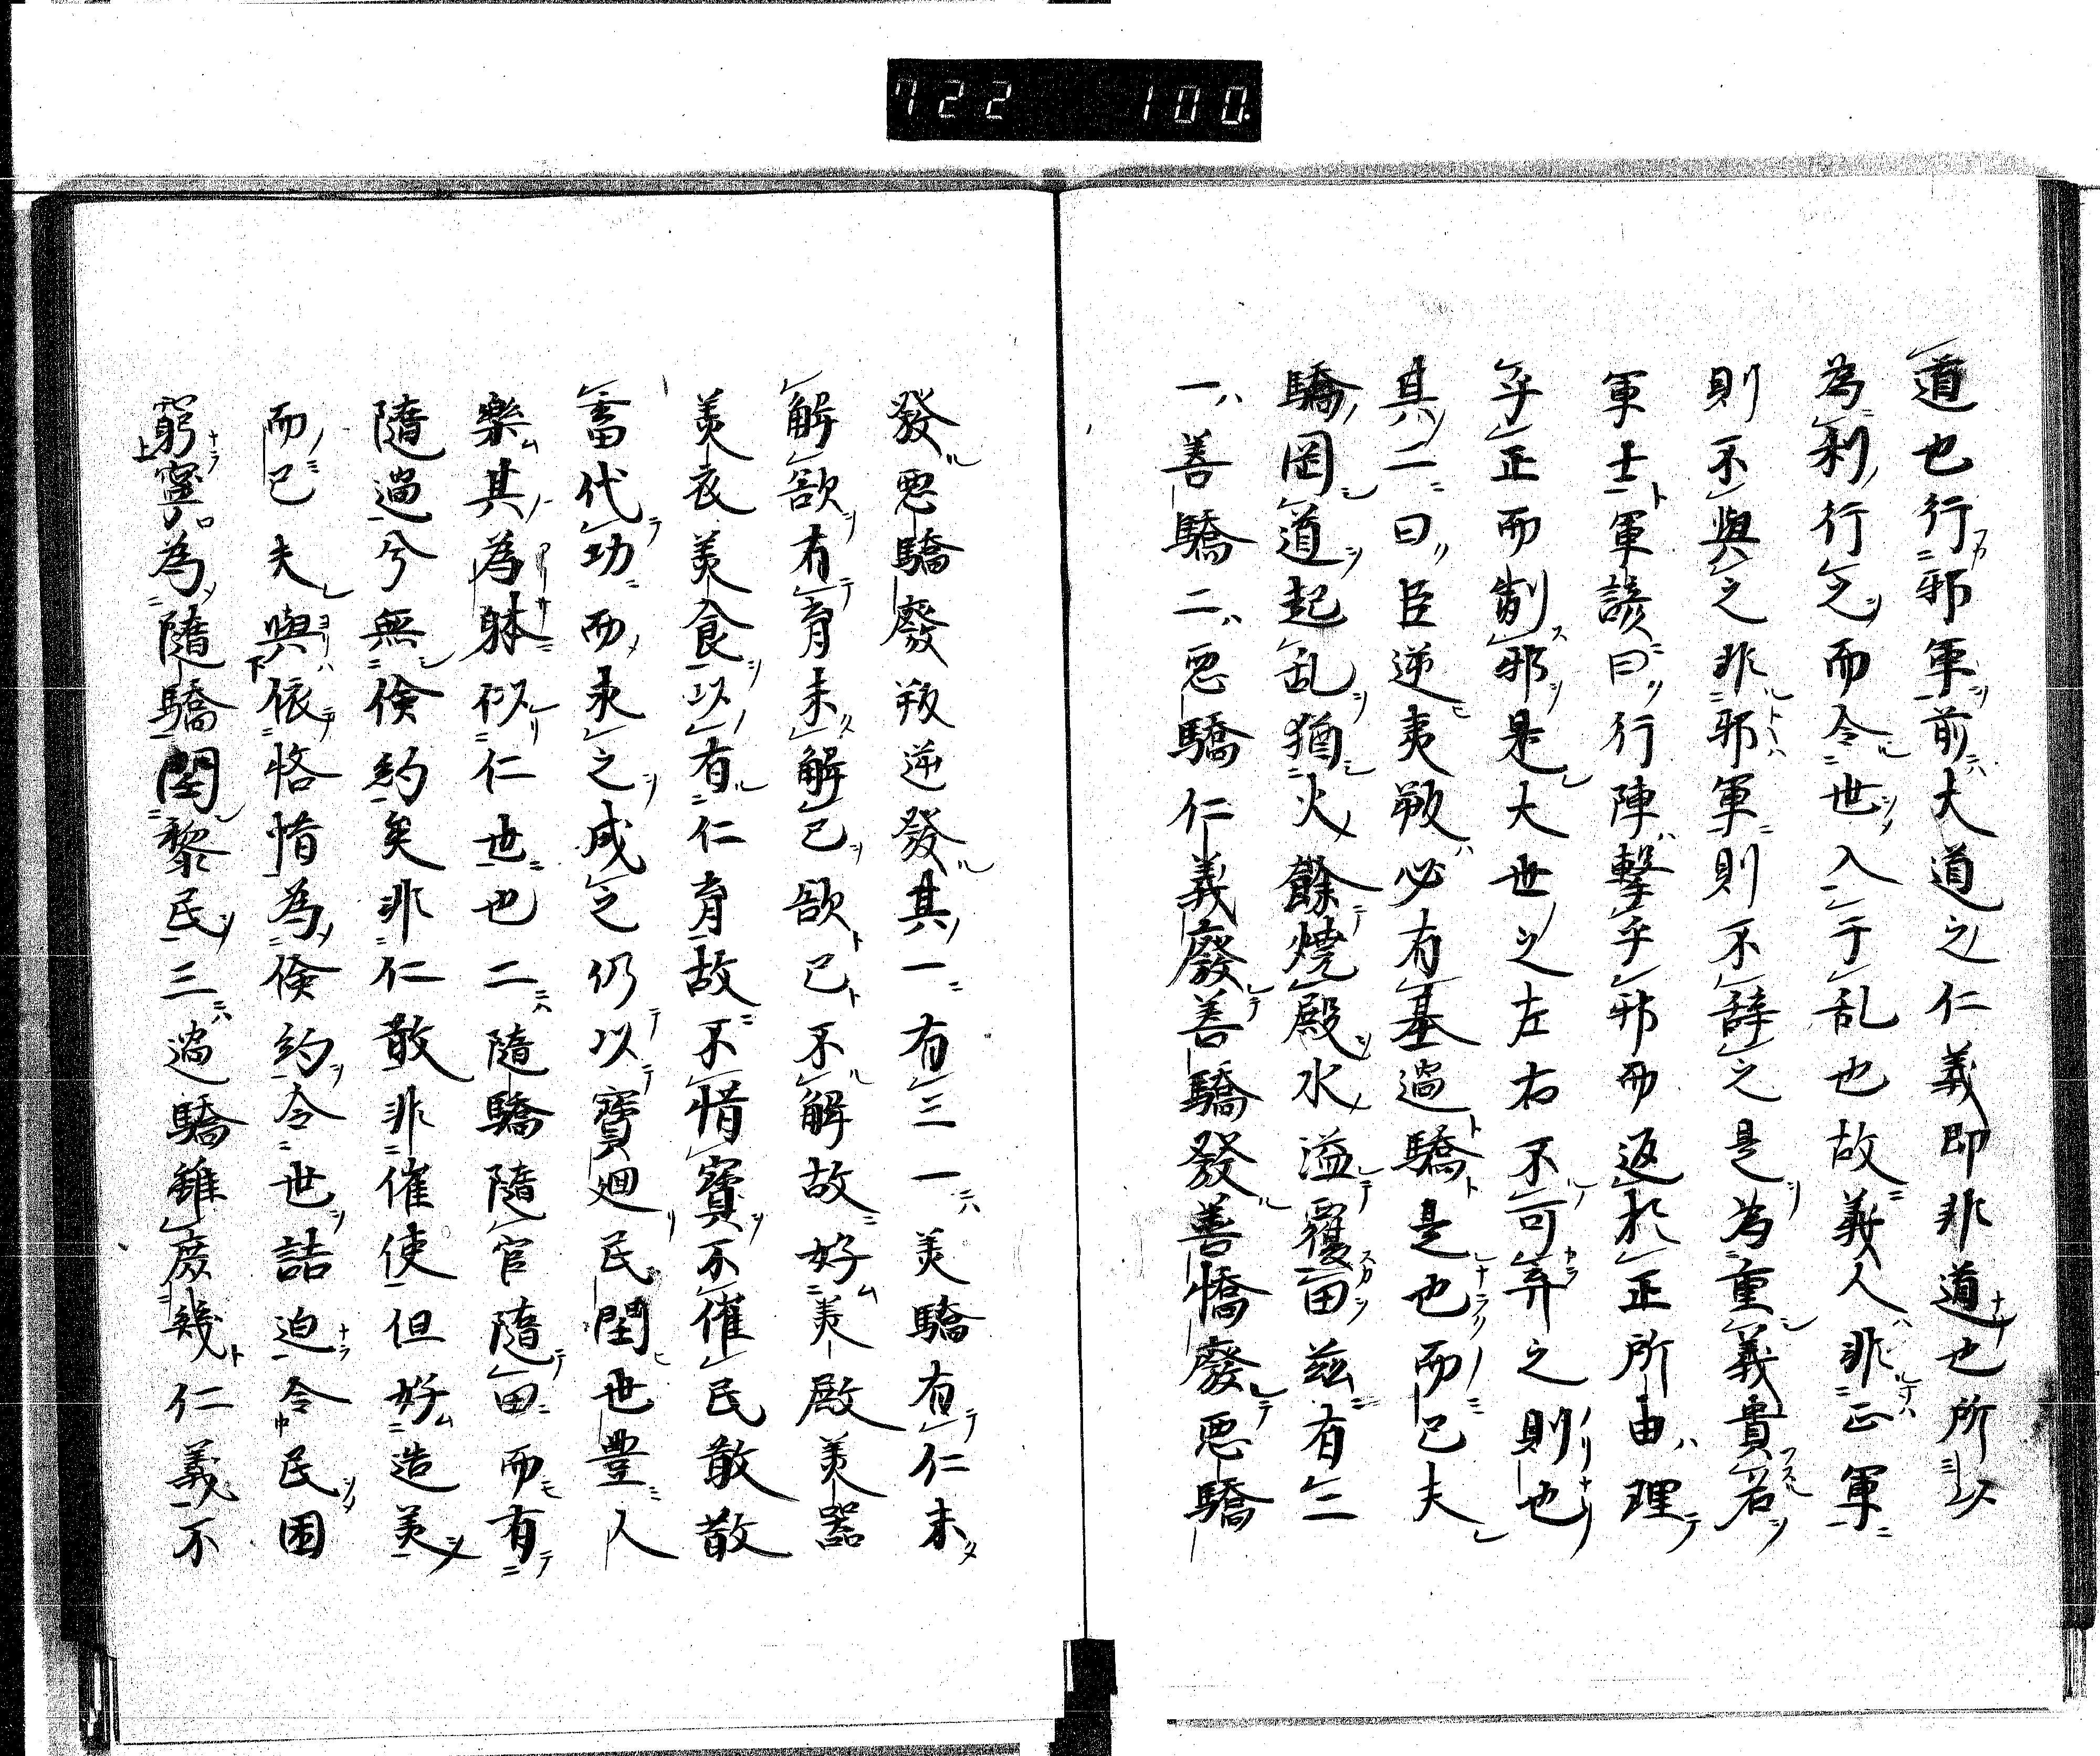 722 100.
道也行邪軍前大道之仁義即非道也所以
為利行之而令世入于乱也故義人非正軍
則不與之非邪軍則不辞之是為重義貴名
軍士軍諺曰行陣擊乎邪而返於正所由理
乎正而制邪是大世之左右不可弃之則也
其二曰臣逆夷叛必有基過驕是也而已夫
驕罔道起乱猶火餘燒殿水溢覆田茲有三
一善驕二惡驕仁義廢善驕發善憍廢惡驕
發惡驕廢叛逆發其一有三一美驕有仁未
解欲有育未解已欲已不解故好美殿美器
美衣美食以有仁育故不惜寶不催民散散
畜代功而求之成之仍以寶廻民閏世豊人
樂其為躰似仁世也二隨驕隨官隨田而有
隨過兮無儉約矣非仁散非催使但好造美
而已夫與依悋惜為儉約令世詰迫令民困
窮寧為隨驕閏黎民三過驕雖庶幾仁義不